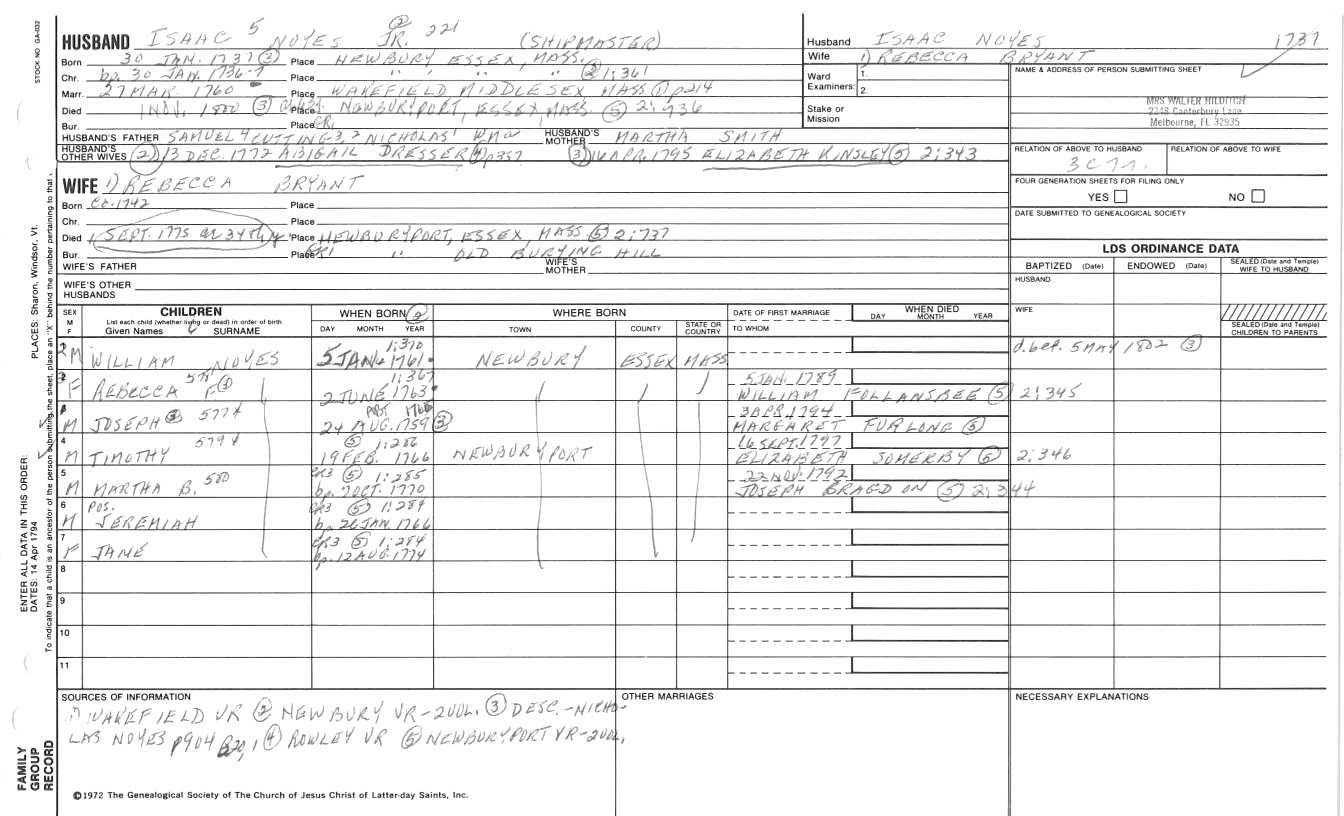 STOCK NO GA-032
HUSBAND ISAAC 5 NOYES JR. ② 221 (SHIPMASTER)
Born 30 JAN. 1737 ③ Place NEWBURY ESSEX, MASS.
Chr. bp. 30 JAN. 1736-7 Place " " " " ② 1:361
Marr. 27 MAR 1760 Place WAKEFIELD MIDDLESEX MASS ① p214
Died 1 NOV. 1800 ③ Place NEWBURYPORT, ESSEX, MASS. ⑤ 2:736
Bur. Place
HUSBAND'S FATHER SAMUEL 4 CUTTING 3, 2 NICHOLAS 1 HUSBAND'S MOTHER MARTHA SMITH
HUSBAND'S OTHER WIVES (2) 13 DEC. 1772 ABIGAIL DRESSER ④ p357 ③ 16 APR. 1795 ELIZABETH KINSLEY ⑤ 2:343
Husband ISAAC NOYES 1737
Wife 1) REBECCA BRYANT
Ward Examiners: 1.
2.
Stake or Mission
NAME & ADDRESS OF PERSON SUBMITTING SHEET
MRS WALTER HILDITCH
2248 Canterbury Lane
Melbourne, FL 32935
RELATION OF ABOVE TO HUSBAND RELATION OF ABOVE TO WIFE
FOUR GENERATION SHEETS FOR FILING ONLY
YES NO
DATE SUBMITTED TO GENEALOGICAL SOCIETY
WIFE 1) REBECCA BRYANT
Born Ca. 1742 Place
Chr. Place
Died 1 SEPT. 1775 ae 34th yr Place NEWBURYPORT, ESSEX, MASS ⑤ 2:737
Bur. Place " OLD BURYING HILL
WIFE'S FATHER WIFE'S MOTHER
WIFE'S OTHER HUSBANDS
LDS ORDINANCE DATA
BAPTIZED (Date) ENDOWED (Date) SEALED (Date and Temple) WIFE TO HUSBAND
HUSBAND
WIFE
SEALED (Date and Temple) CHILDREN TO PARENTS
SEX M F
CHILDREN
List each child (whether living or dead) in order of birth
Given Names SURNAME
WHEN BORN ②
DAY MONTH YEAR
WHERE BORN
TOWN COUNTY STATE OR COUNTRY
DATE OF FIRST MARRIAGE
TO WHOM
WHEN DIED
DAY MONTH YEAR
1:370
2 M WILLIAM NOYES 5 JAN. 1761 NEWBURY ESSEX MASS d. bet. 5 MAY 1802 ③
578 1:367 5 JAN. 1789
3 F REBECCA F ③ 2 JUNE 1763 WILLIAM FOLLANSBEE ⑤ 2:345
577 4 3 APR. 1794
1 M JOSEPH ③ 24 AUG. 1759 ③ MARGARET FURLONG ⑤
579 4 ⑤ 1:286 16 SEPT. 1797
4 M TIMOTHY 19 FEB. 1766 NEWBURYPORT ELIZABETH SOMERBY ⑤ 2:346
580 CR3 ⑤ 1:285 22 NOV. 1792
5 M MARTHA B. bp. 7 OCT. 1770 JOSEPH BRAGDON ⑤ 2:344
POS. CR3 ⑤ 1:284
6 M JEREMIAH bp. 26 JAN. 1766
CR3 ⑤ 1:284
7 F JANE bp. 12 AUG. 1774
8
9
10
11
SOURCES OF INFORMATION
① WAKEFIELD VR ② NEWBURY VR-2VOL. ③ DESC.-NICHO-
LAS NOYES p904 ④ ROWLEY VR ⑤ NEWBURYPORT VR-2VOL.
OTHER MARRIAGES
NECESSARY EXPLANATIONS
©1972 The Genealogical Society of The Church of Jesus Christ of Latter-day Saints, Inc.
FAMILY GROUP RECORD
ENTER ALL DATA IN THIS ORDER:
DATES: 14 Apr 1794
PLACES: Sharon, Windsor, Vt.
To indicate that a child is an ancestor of the person submitting the sheet, place an "X" behind the number pertaining to that